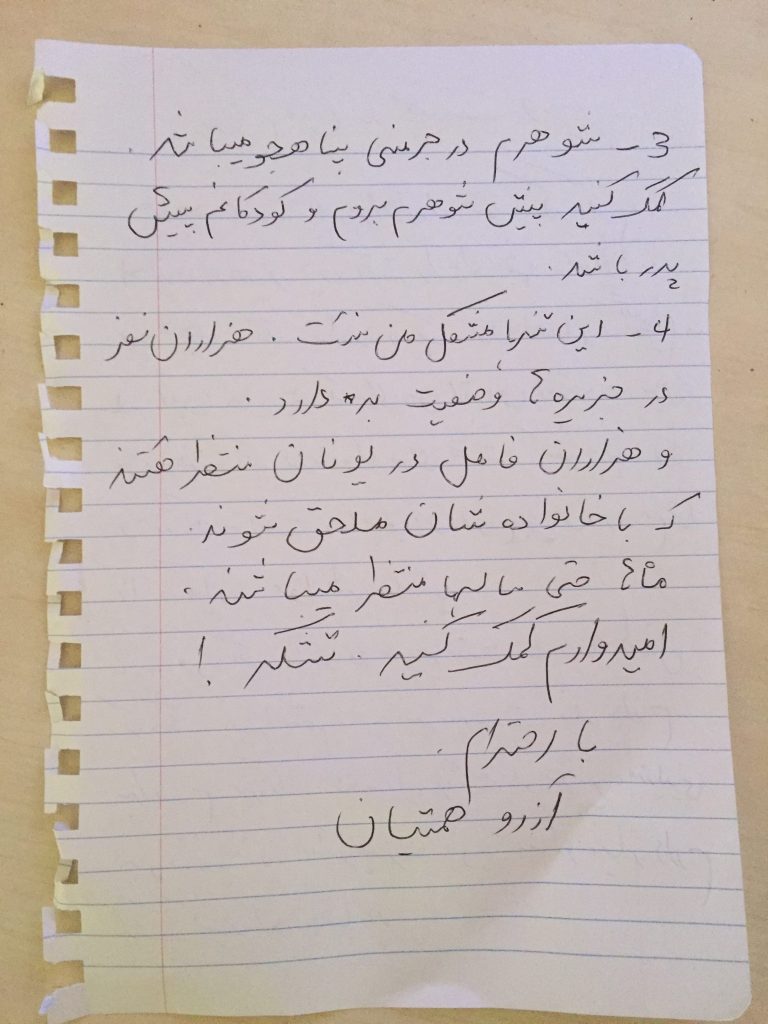 3 - شوهرم در جرمنی پناهجو میباشد.
کمک کنید پیش شوهرم بروم و کودکانم پیش
پدر باشد.
4 - این تنها مشکل من نیست. هزاران نفر
در جزیره ها وضعیت بد دارد.
و هزاران فامل در یونان منتظر هستند
که با خانواده شان ملحق شوند.
ماه ها حتی سالها منتظر میباشند.
امیدوارم کمک کنید. تشکر!
با احترام.
آرزو همتیان